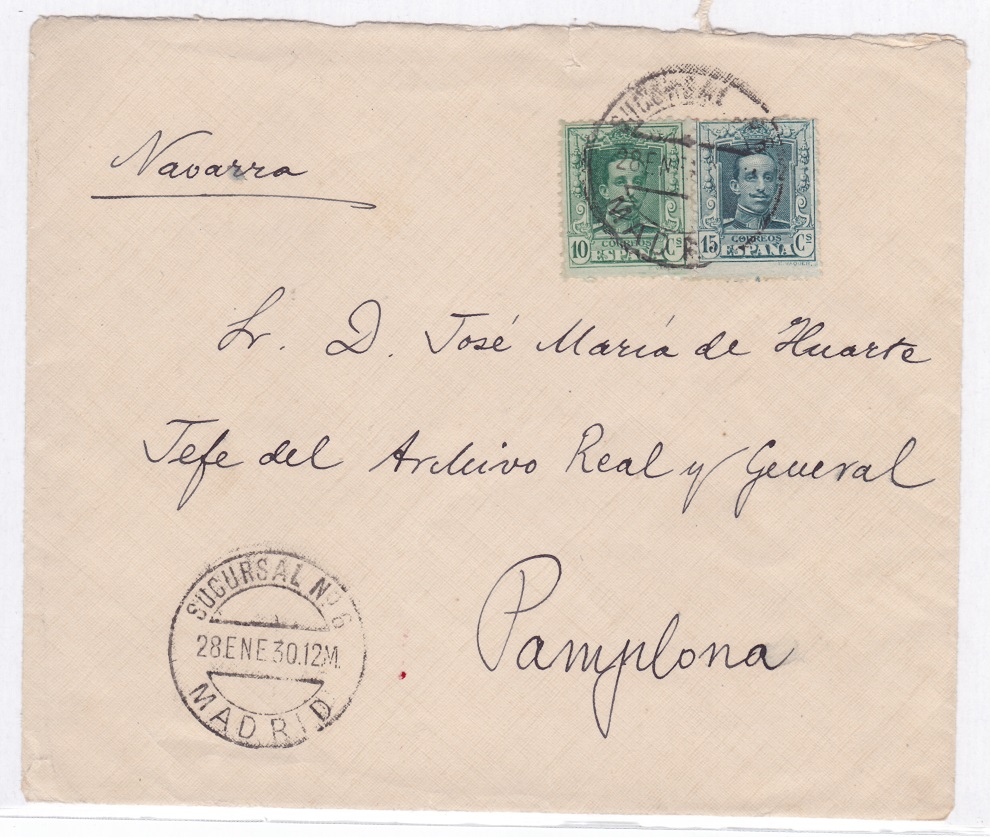 Navarra
SUCURSAL
28 ENE
MADR
10 Cs
CORREOS
ESPAÑA
15 Cs
CORREOS
ESPAÑA
Sr. D. José María de Huarte
Jefe del Archivo Real y General
Pamplona
SUCURSAL Nº 6
28.ENE 30.12M.
MADRID